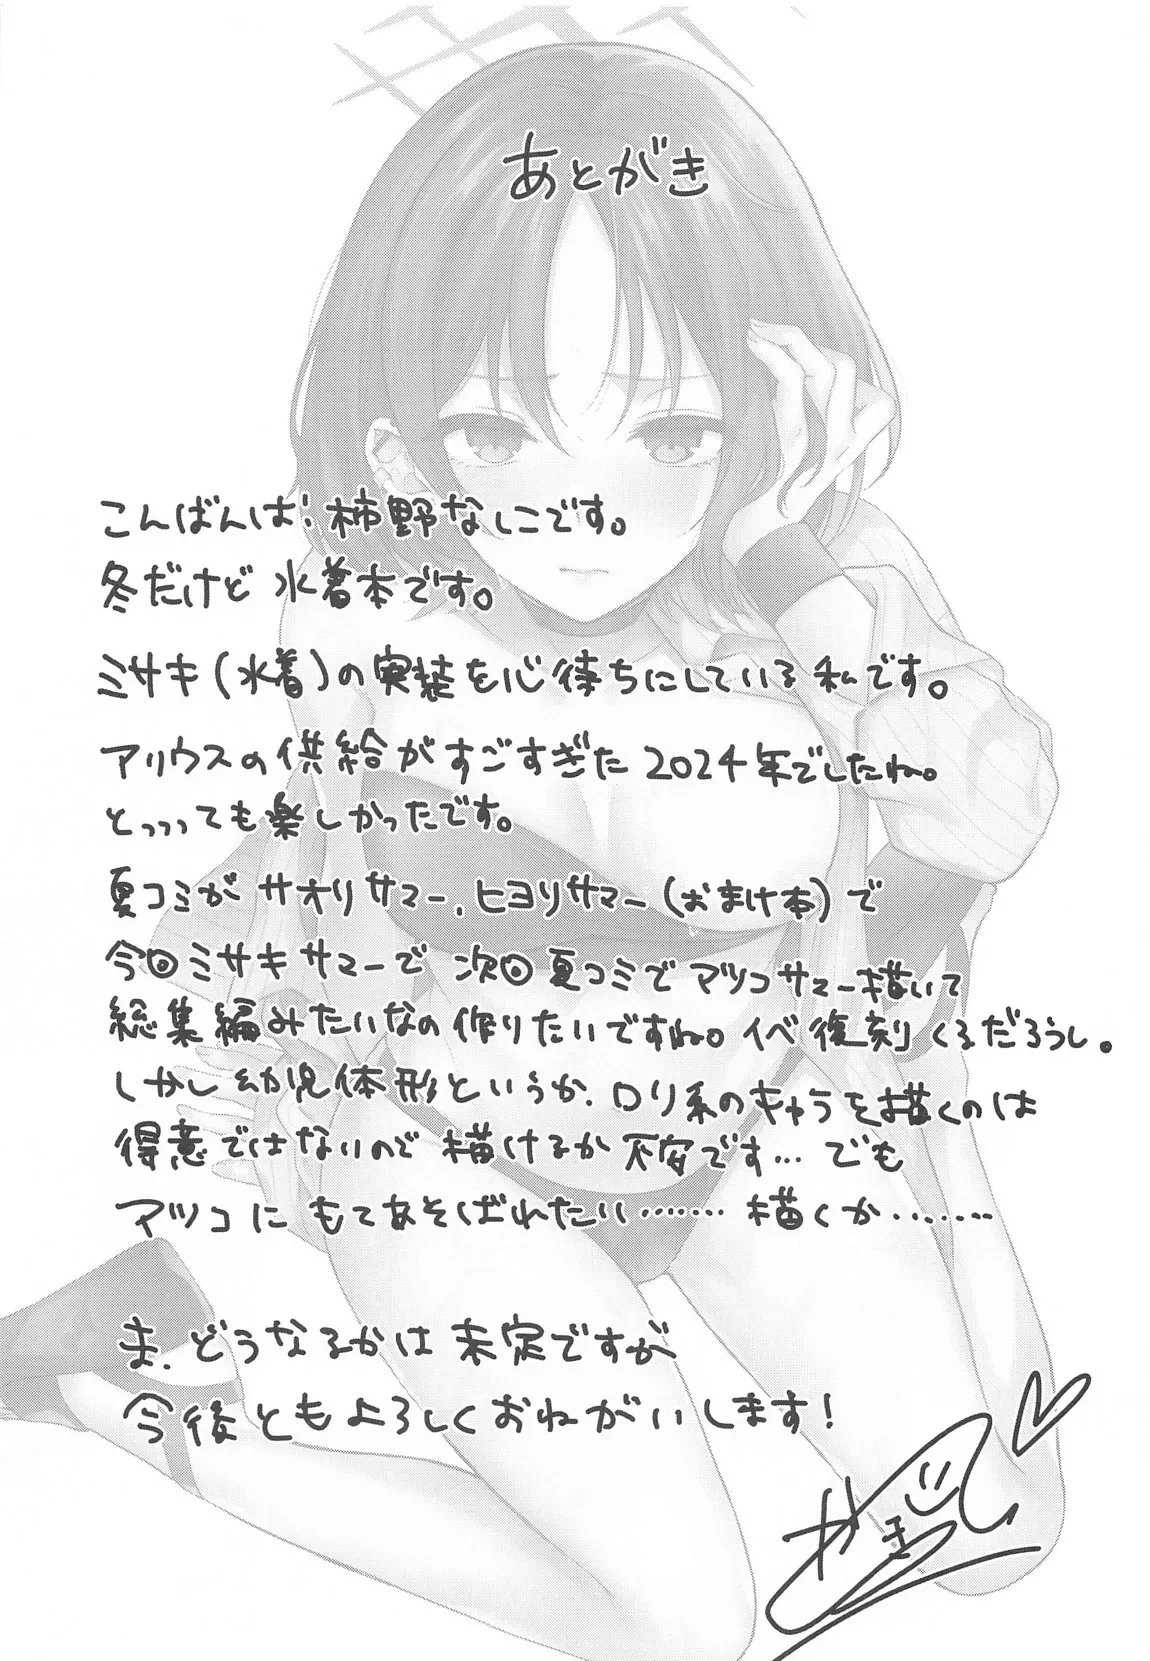 あとがき
こんばんは!柿野なしこです。
冬だけど 水着本です。
ミサキ(水着)の実装を心待ちにしている私です。
アリウスの供給がすごすぎた2024年でしたね。
とっっっても楽しかったです。
夏コミがサオリサマー、ヒヨリサマー(おまけ本)で
今回ミサキサマーで 次回夏コミでアツコサマー描いて
総集編みたいなの作りたいですね。イベ復刻くるだろうし。
しかし幼児体形というか、ロリ系のキャラを描くのは
得意ではないので描けるか不安です… でも
アツコに もてあそばれたい…… 描くか……
ま、どうなるかは未定ですが
今後ともよろしくおねがいします!
かき